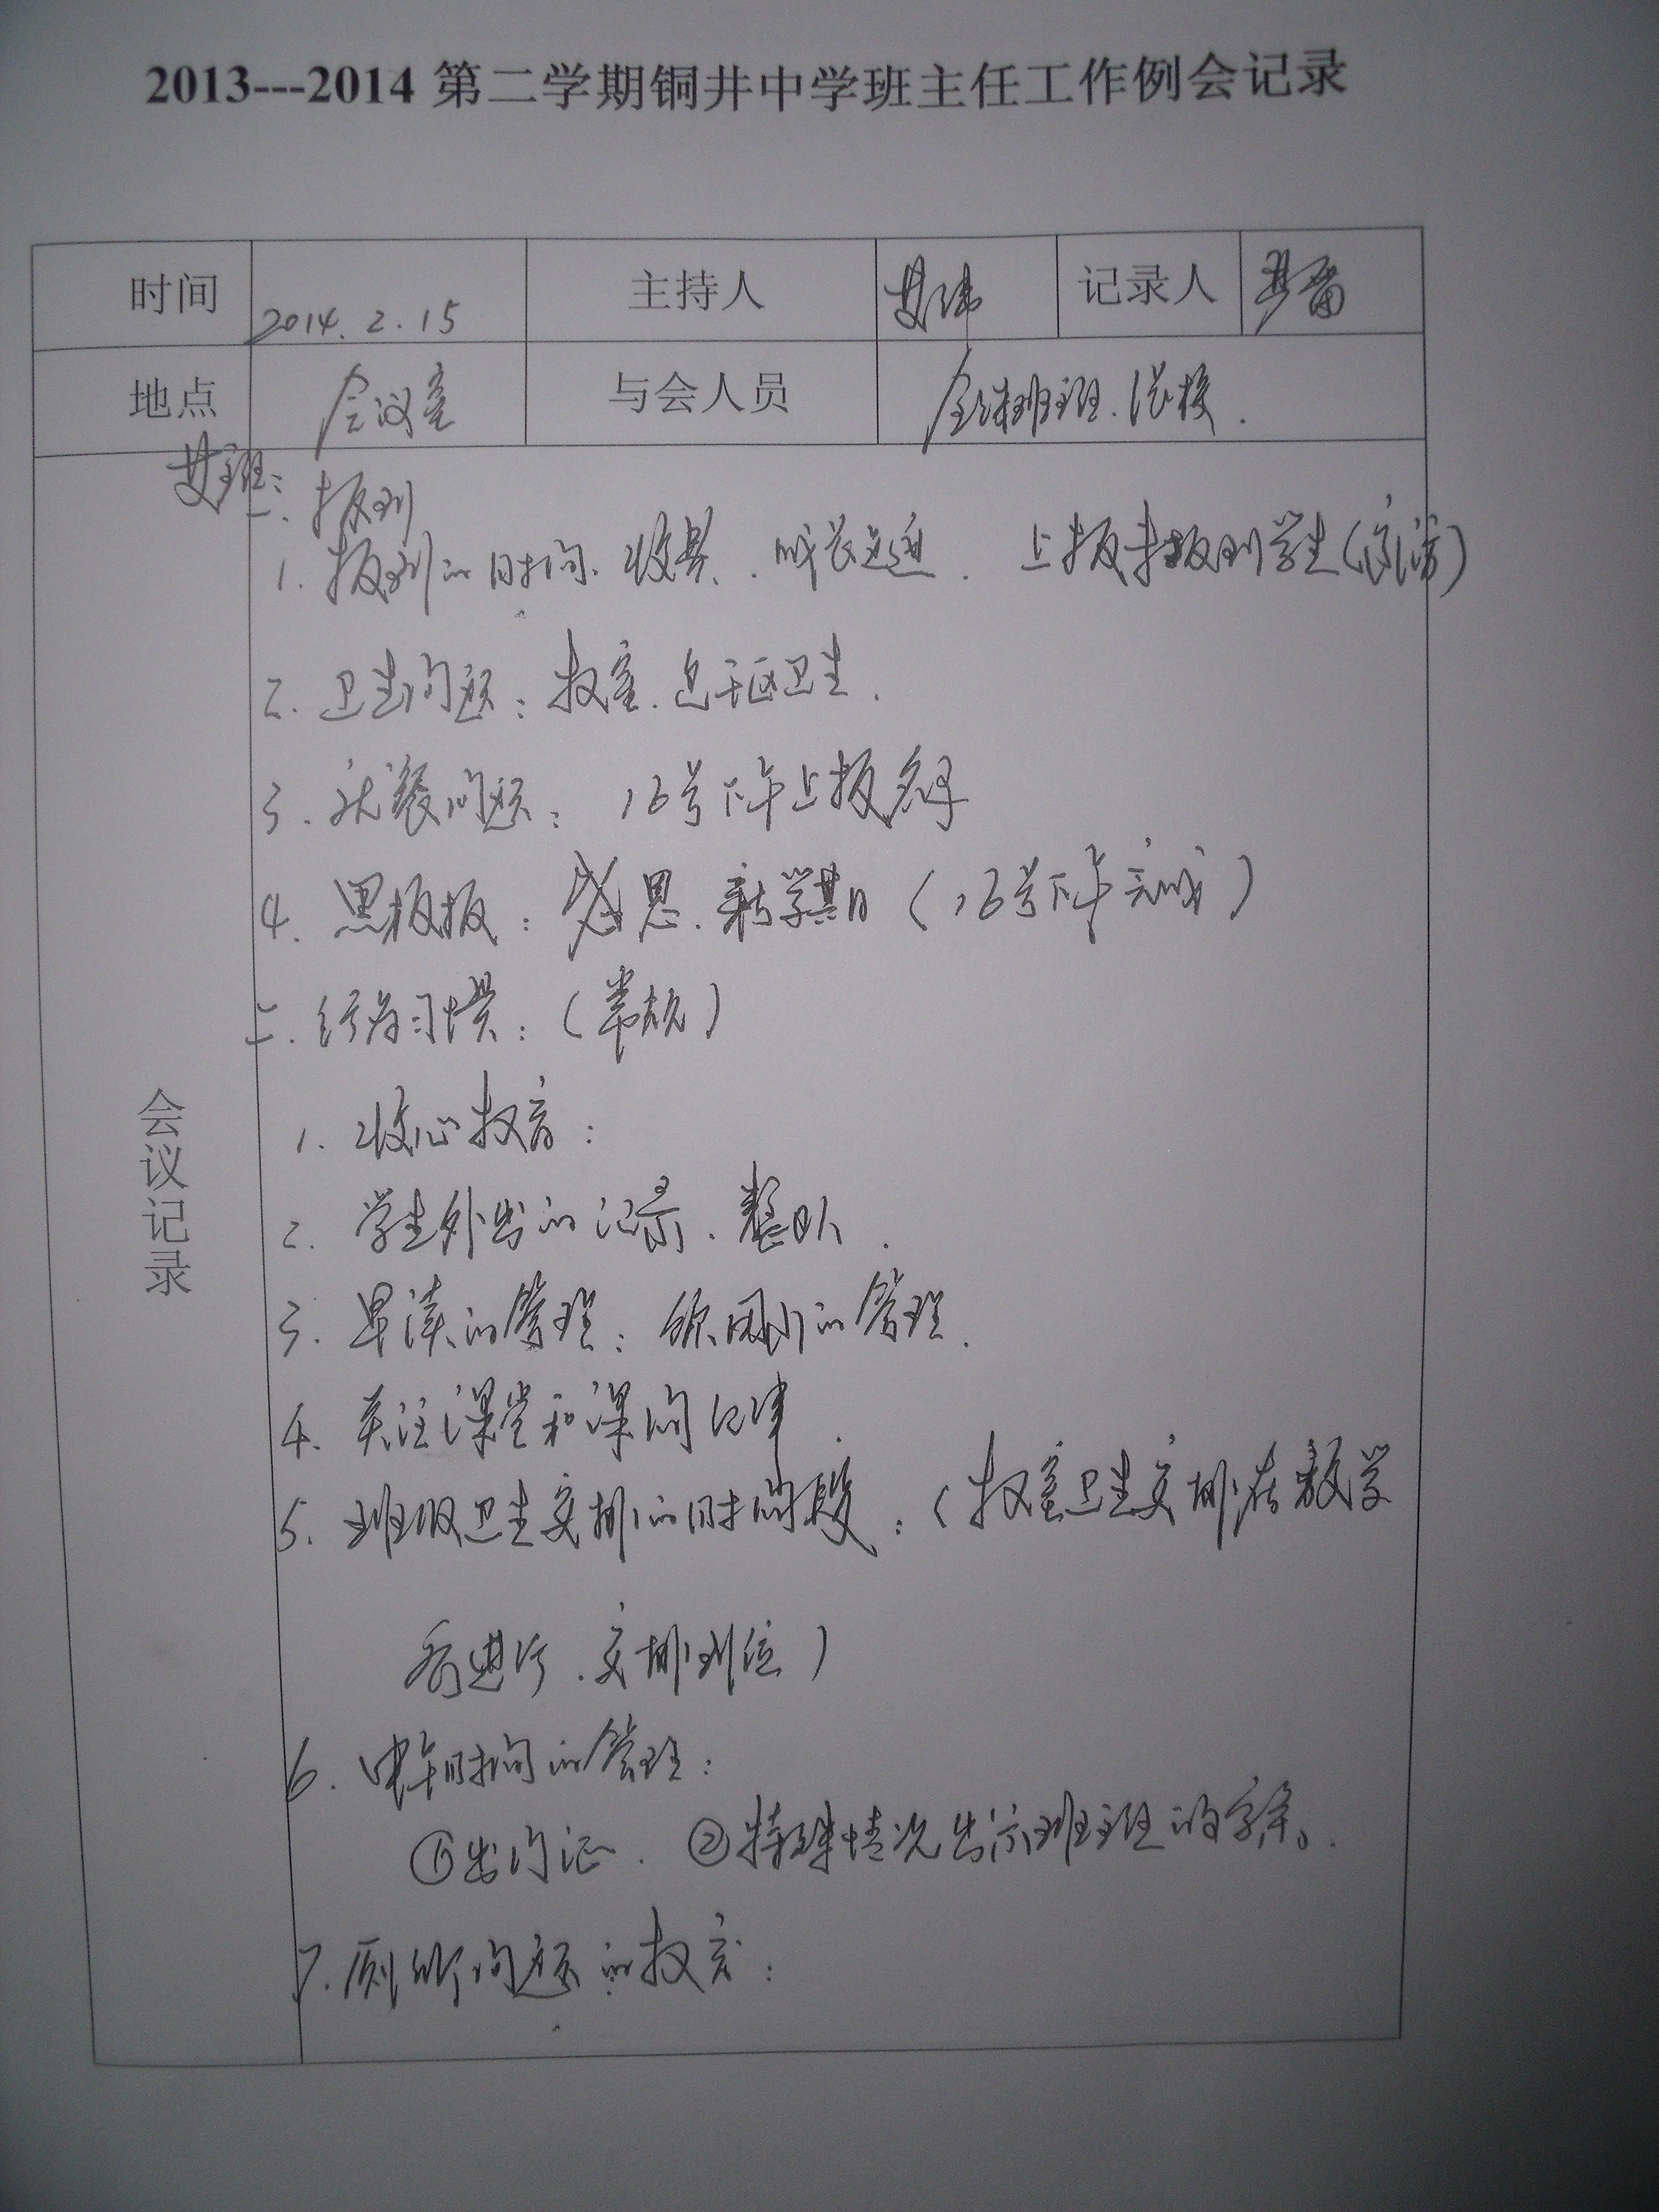 2013---2014 第二学期铜井中学班主任工作例会记录
时间 2014.2.15 主持人 记录人
地点 会议室 与会人员 全体班主任.
会议记录
一. 报到
1. 报到的时间. 收费. 成长足迹. 上报未报到学生(家访)
2. 卫生问题: 教室. 包干区卫生.
3. 就餐问题: 16号下午上报名单
4. 黑板报: 感恩. 新学期(16号下午完成)
二. 行为习惯:(常规)
1. 收心教育:
2. 学生外出的记录. 整队.
3. 早读的管理: 的管理.
4. 关注课堂和课间纪律
5. 班级卫生安排的时间段:(教室卫生安排在放学
后进行. 安排到位)
6. 中午时间的管理:
①出门证. ②特殊情况出示班主任的字条.
7. 厕所问题的教育: